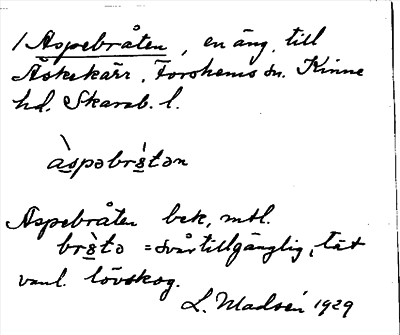 / Aspebråten, en äng, till
Äskekärr, Forshems sn. Kinne
hd. Skarab. l.
àspəbrs̀tən
Aspebråten bek, mtl.
brs̀tə = svårtillgänglig, tät
vanl. lövskog.
L. Madsén 1929